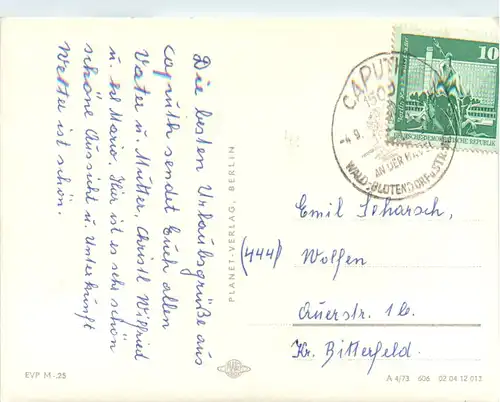 Die besten Urlaubsgrüße aus
Caputh sendet Euch allen
Vater u. Mutter, Christl Wilfried
u. Mario. Hier ist es sehr schön
schöne Aussicht u. Unterkunft
Wetter ist schön.
PLANET-VERLAG, BERLIN
10
DEUTSCHE DEMOKRATISCHE REPUBLIK
CAPUTH
1509
-4.9.
AN DER HAVEL
WALD-BLÜTENDORF
Emil Scharsch,
(444) Wolfen
Auerstr. 16.
Kr. Bitterfeld.
EVP M -.25
A 4/73 606 02 04 12 012